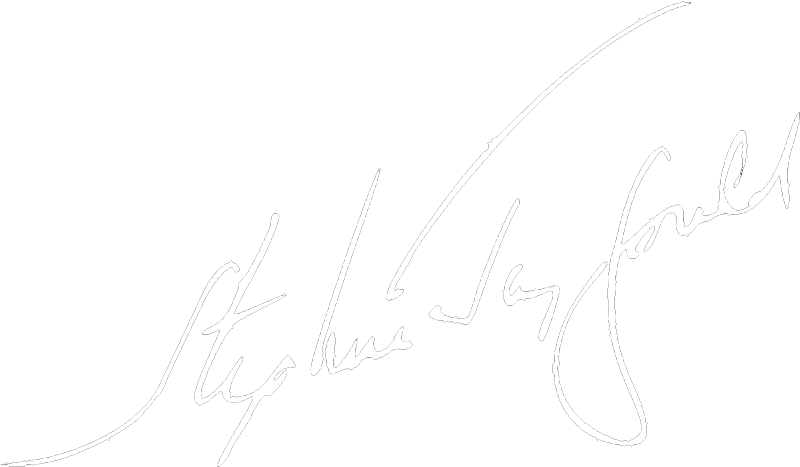 Stephen Jay Gould